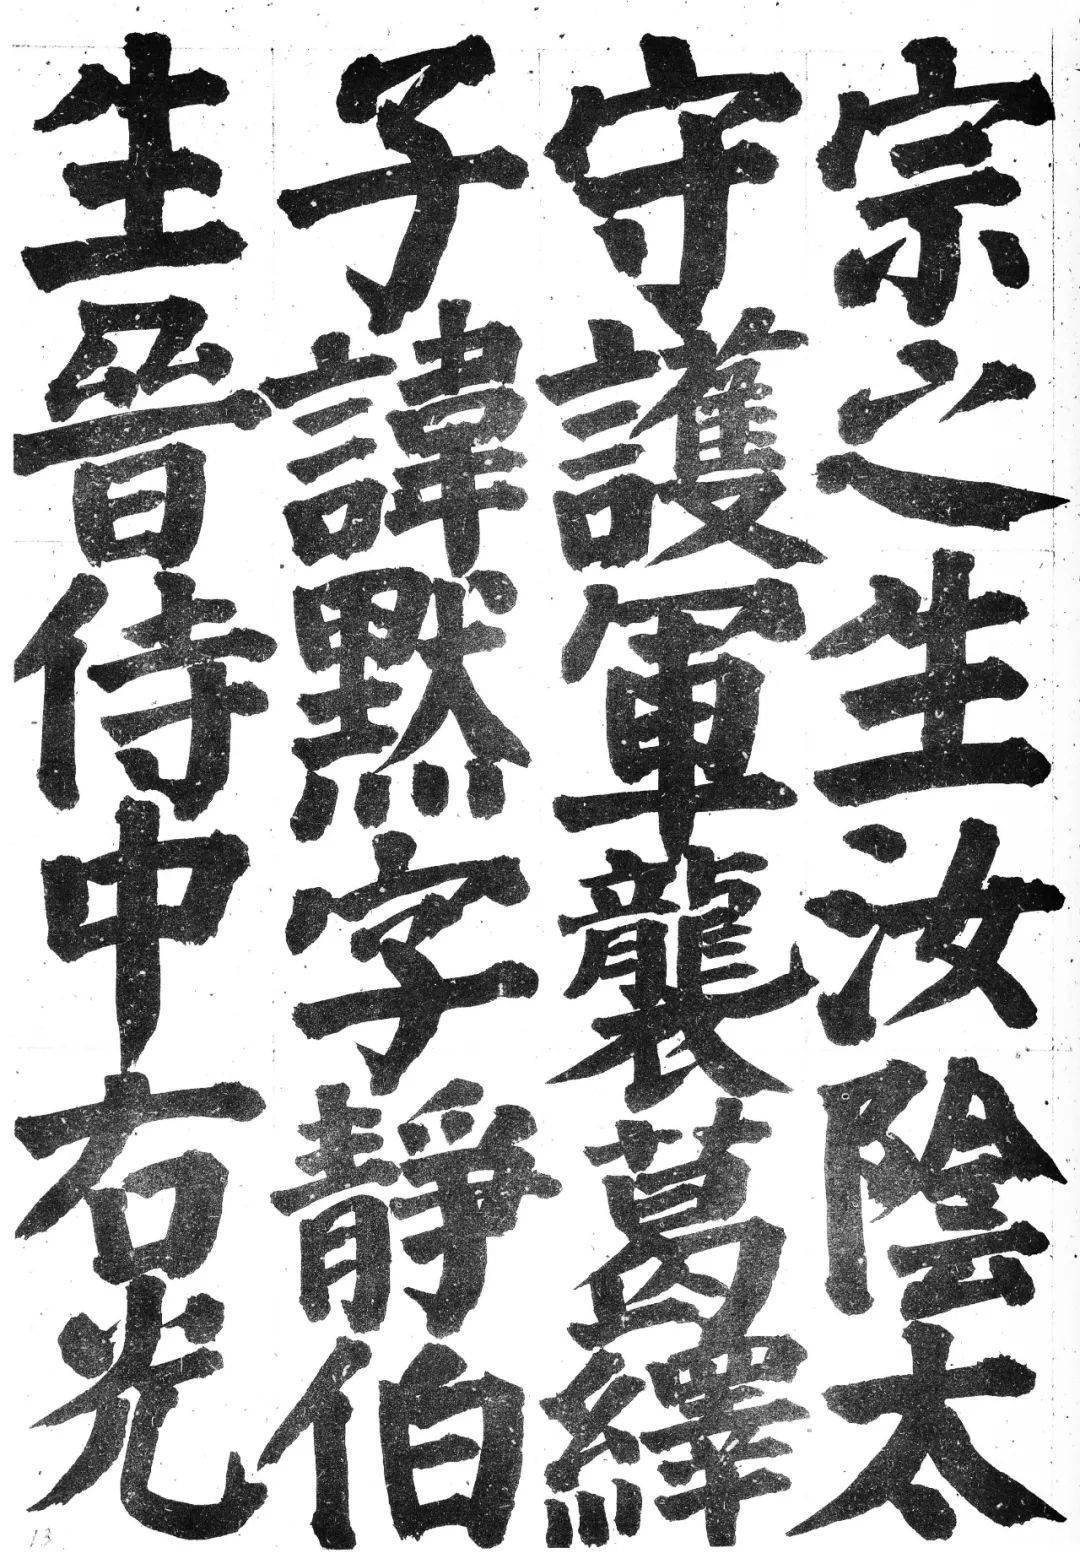 宗之生汝陰太
守護軍襲葛繹
子諱默字靜伯
生晉侍中右光
13